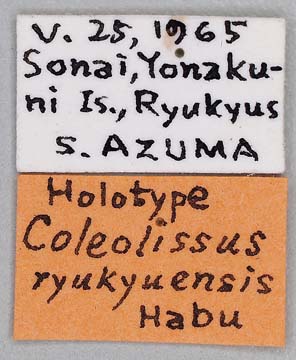 V. 25, 1965
Sonai, Yonaku-
ni Is., Ryukyus
S. AZUMA
Holotype
Coleolissus
ryukyuensis
Habu